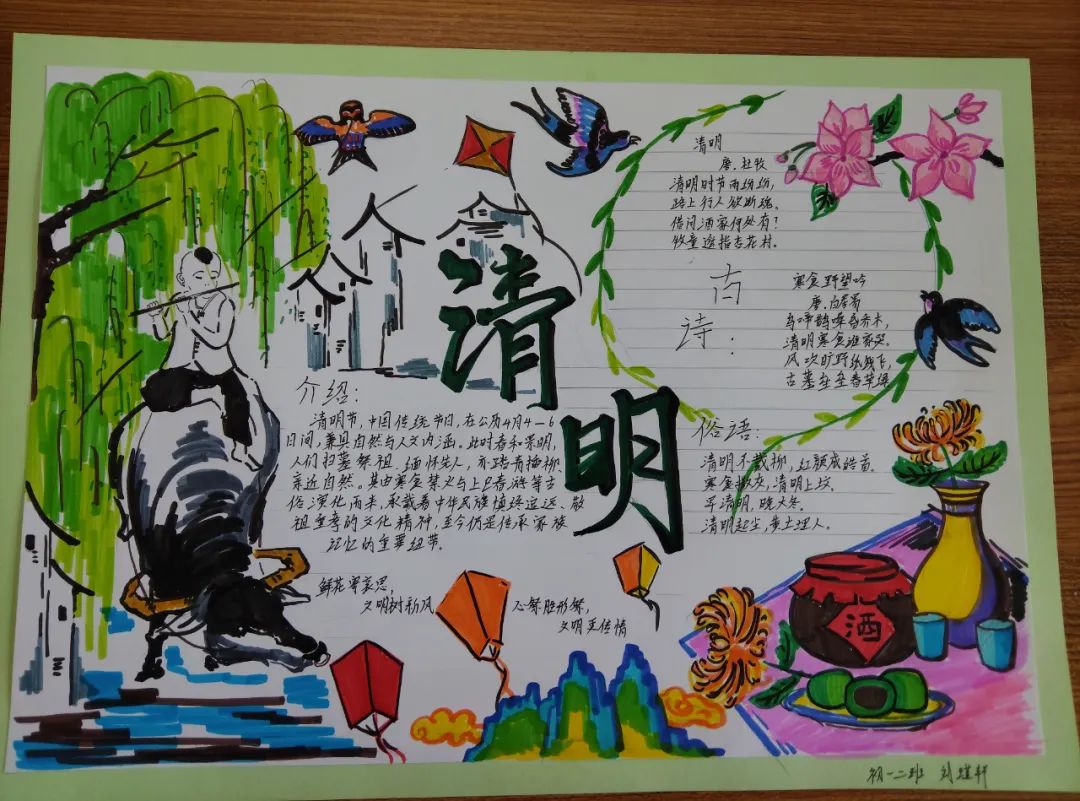 清明
介绍：
清明节，中国传统节日，在公历4月4—6
日间，兼具自然与人文内涵。此时春和景明，
人们扫墓祭祖、缅怀先人，亦踏青插柳、
亲近自然。其由寒食禁火与上巳春游等古
俗演化而来，承载着中华民族慎终追远、敬
祖重孝的文化精神，至今仍是传承家族
记忆的重要纽带。
鲜花寄哀思，
文明树新风
心祭胜形祭，
文明更传情
古诗：
清明
唐．杜牧
清明时节雨纷纷，
路上行人欲断魂。
借问酒家何处有？
牧童遥指杏花村。
寒食野望吟
唐．白居易
乌啼鹊噪昏乔木，
清明寒食谁家哭。
风吹旷野纸钱飞，
古墓垒垒春草绿
俗语：
清明不戴柳，红颜成皓首。
寒食，清明上坟。
早清明，晚大冬。
清明起尘，黄土埋人。
酒
初一二班 刘轩